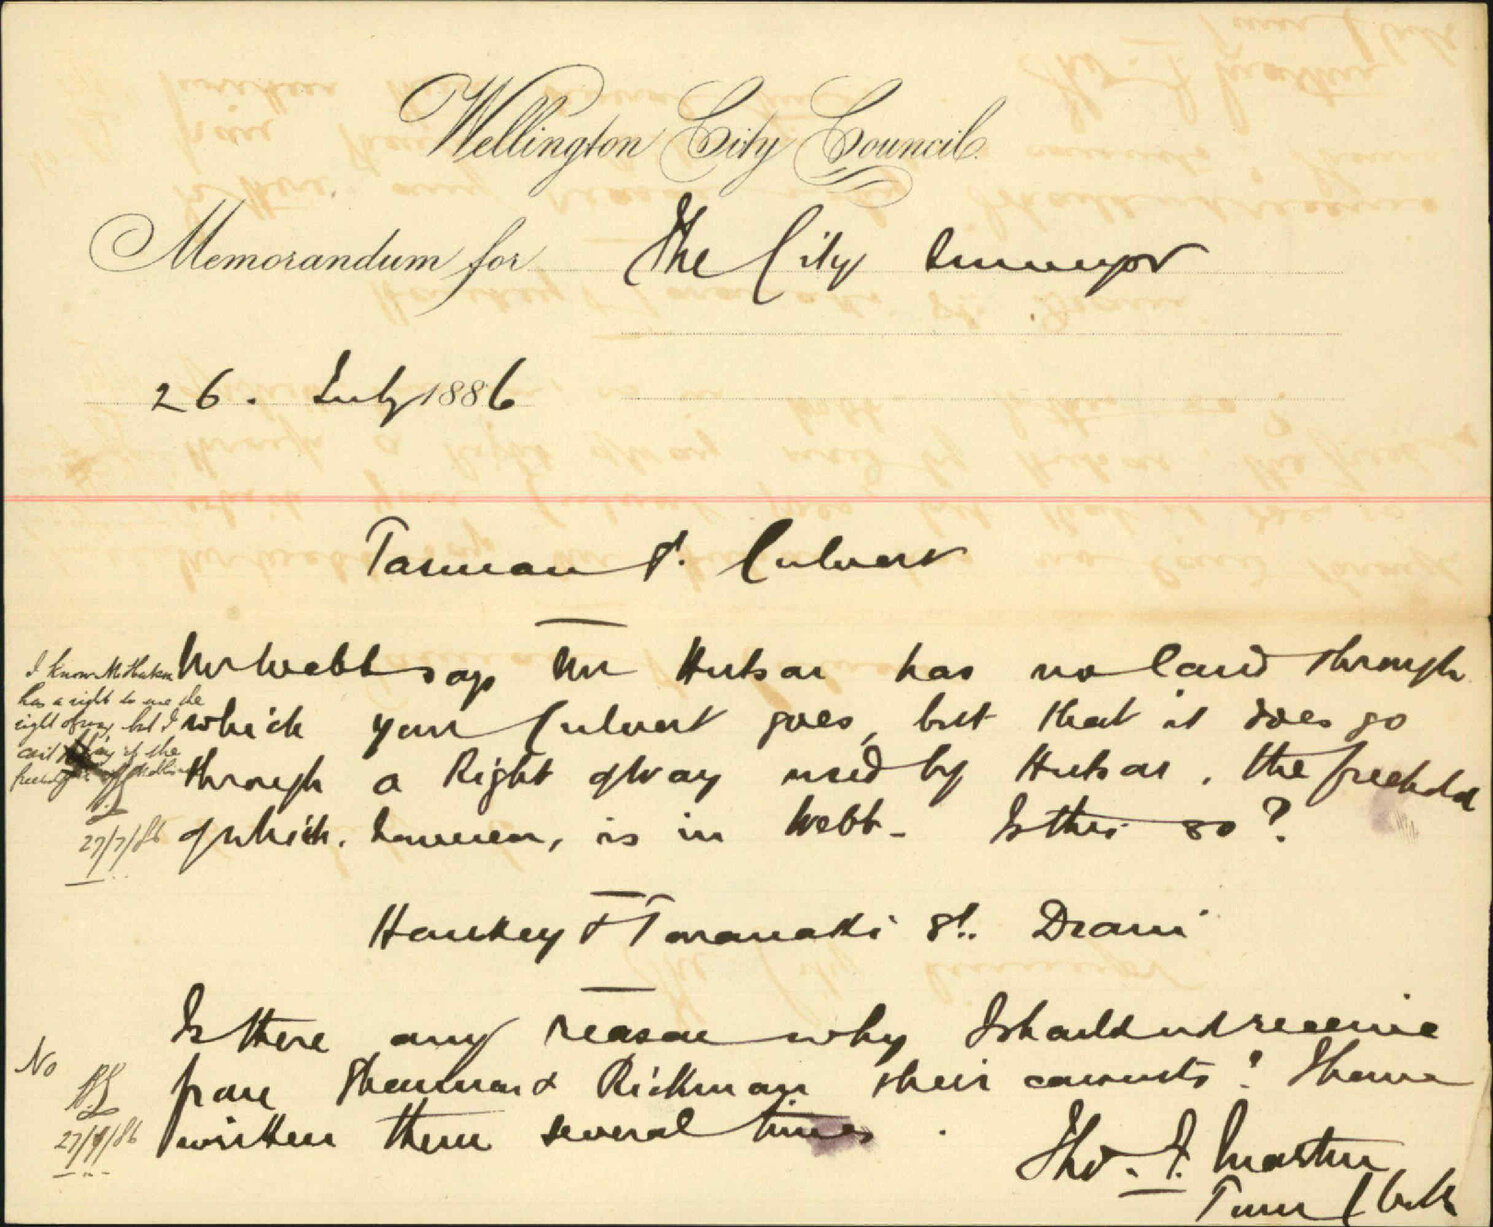 Wellington City Council.
Memorandum for The City Surveyor
26. July 1886
Tasman St. Culvert
Mr Webb says Mr Hutson has no land through
which your Culvert goes, but that it does go
through a Right of Way used by Hutson. the freehold
of which, however, is in Webb - Is this so?
I know Mr Hutson
has a right to use the
right of way but I
can't say if the
27/7/86
Hankey & Taranaki St. Drain
Is there any reason why I should not receive
from & Rickman their consents? I have
written them several times.
No
27/7/86
Tho. F. Martin
Town Clerk